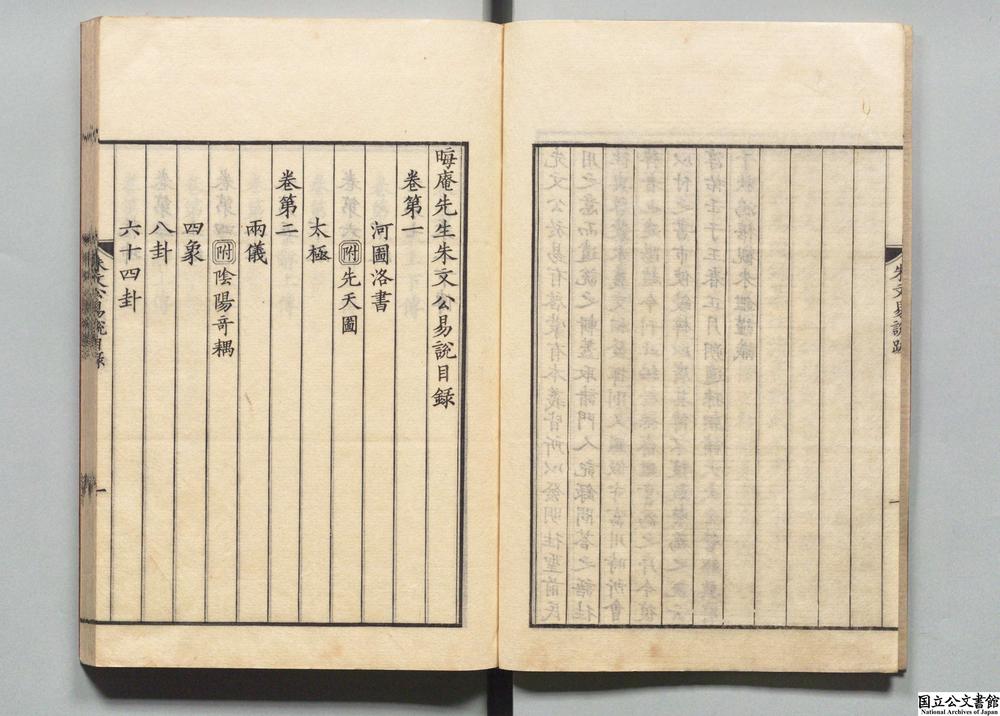 朱文易說跋
一
晦庵先生朱文公易說目錄
卷第一
河圖洛書
附先天圖
太極
卷第二
兩儀
附陰陽奇耦
四象
八卦
六十四卦
朱文公易說目錄
一
国立公文書館
National Archives of Japan